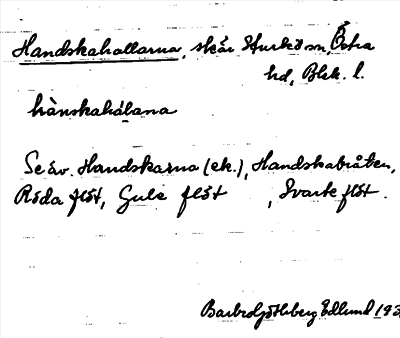 Handskahallarna, skär Sturkö sn, Östra
hd, Blek. l.
hànskahálana
Se äv. Handskarna (ek.), Handskabråten,
Röda flöt, Gule flöt, Svarte flöt.
Edlund 193